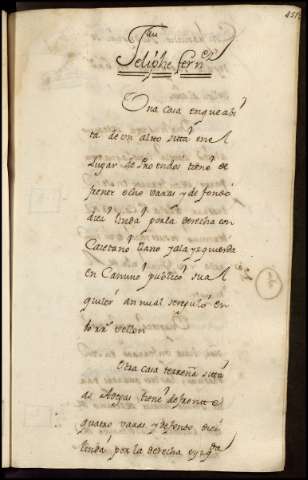 Phelipe Fern.
Una casa en que abi
ta de un alto sitta en el
Lugar de tiene de
frente ocho varas y de fondo
diez linda por la derecha con
Caietano Llano y a la yzquierda
con Camino publico su al
quiler annual se regulo en
rr.s vellon
Otra casa terrena sitta
tiene de frente
quatro varas y de fondo diez
linda por la derecha e yzq.da